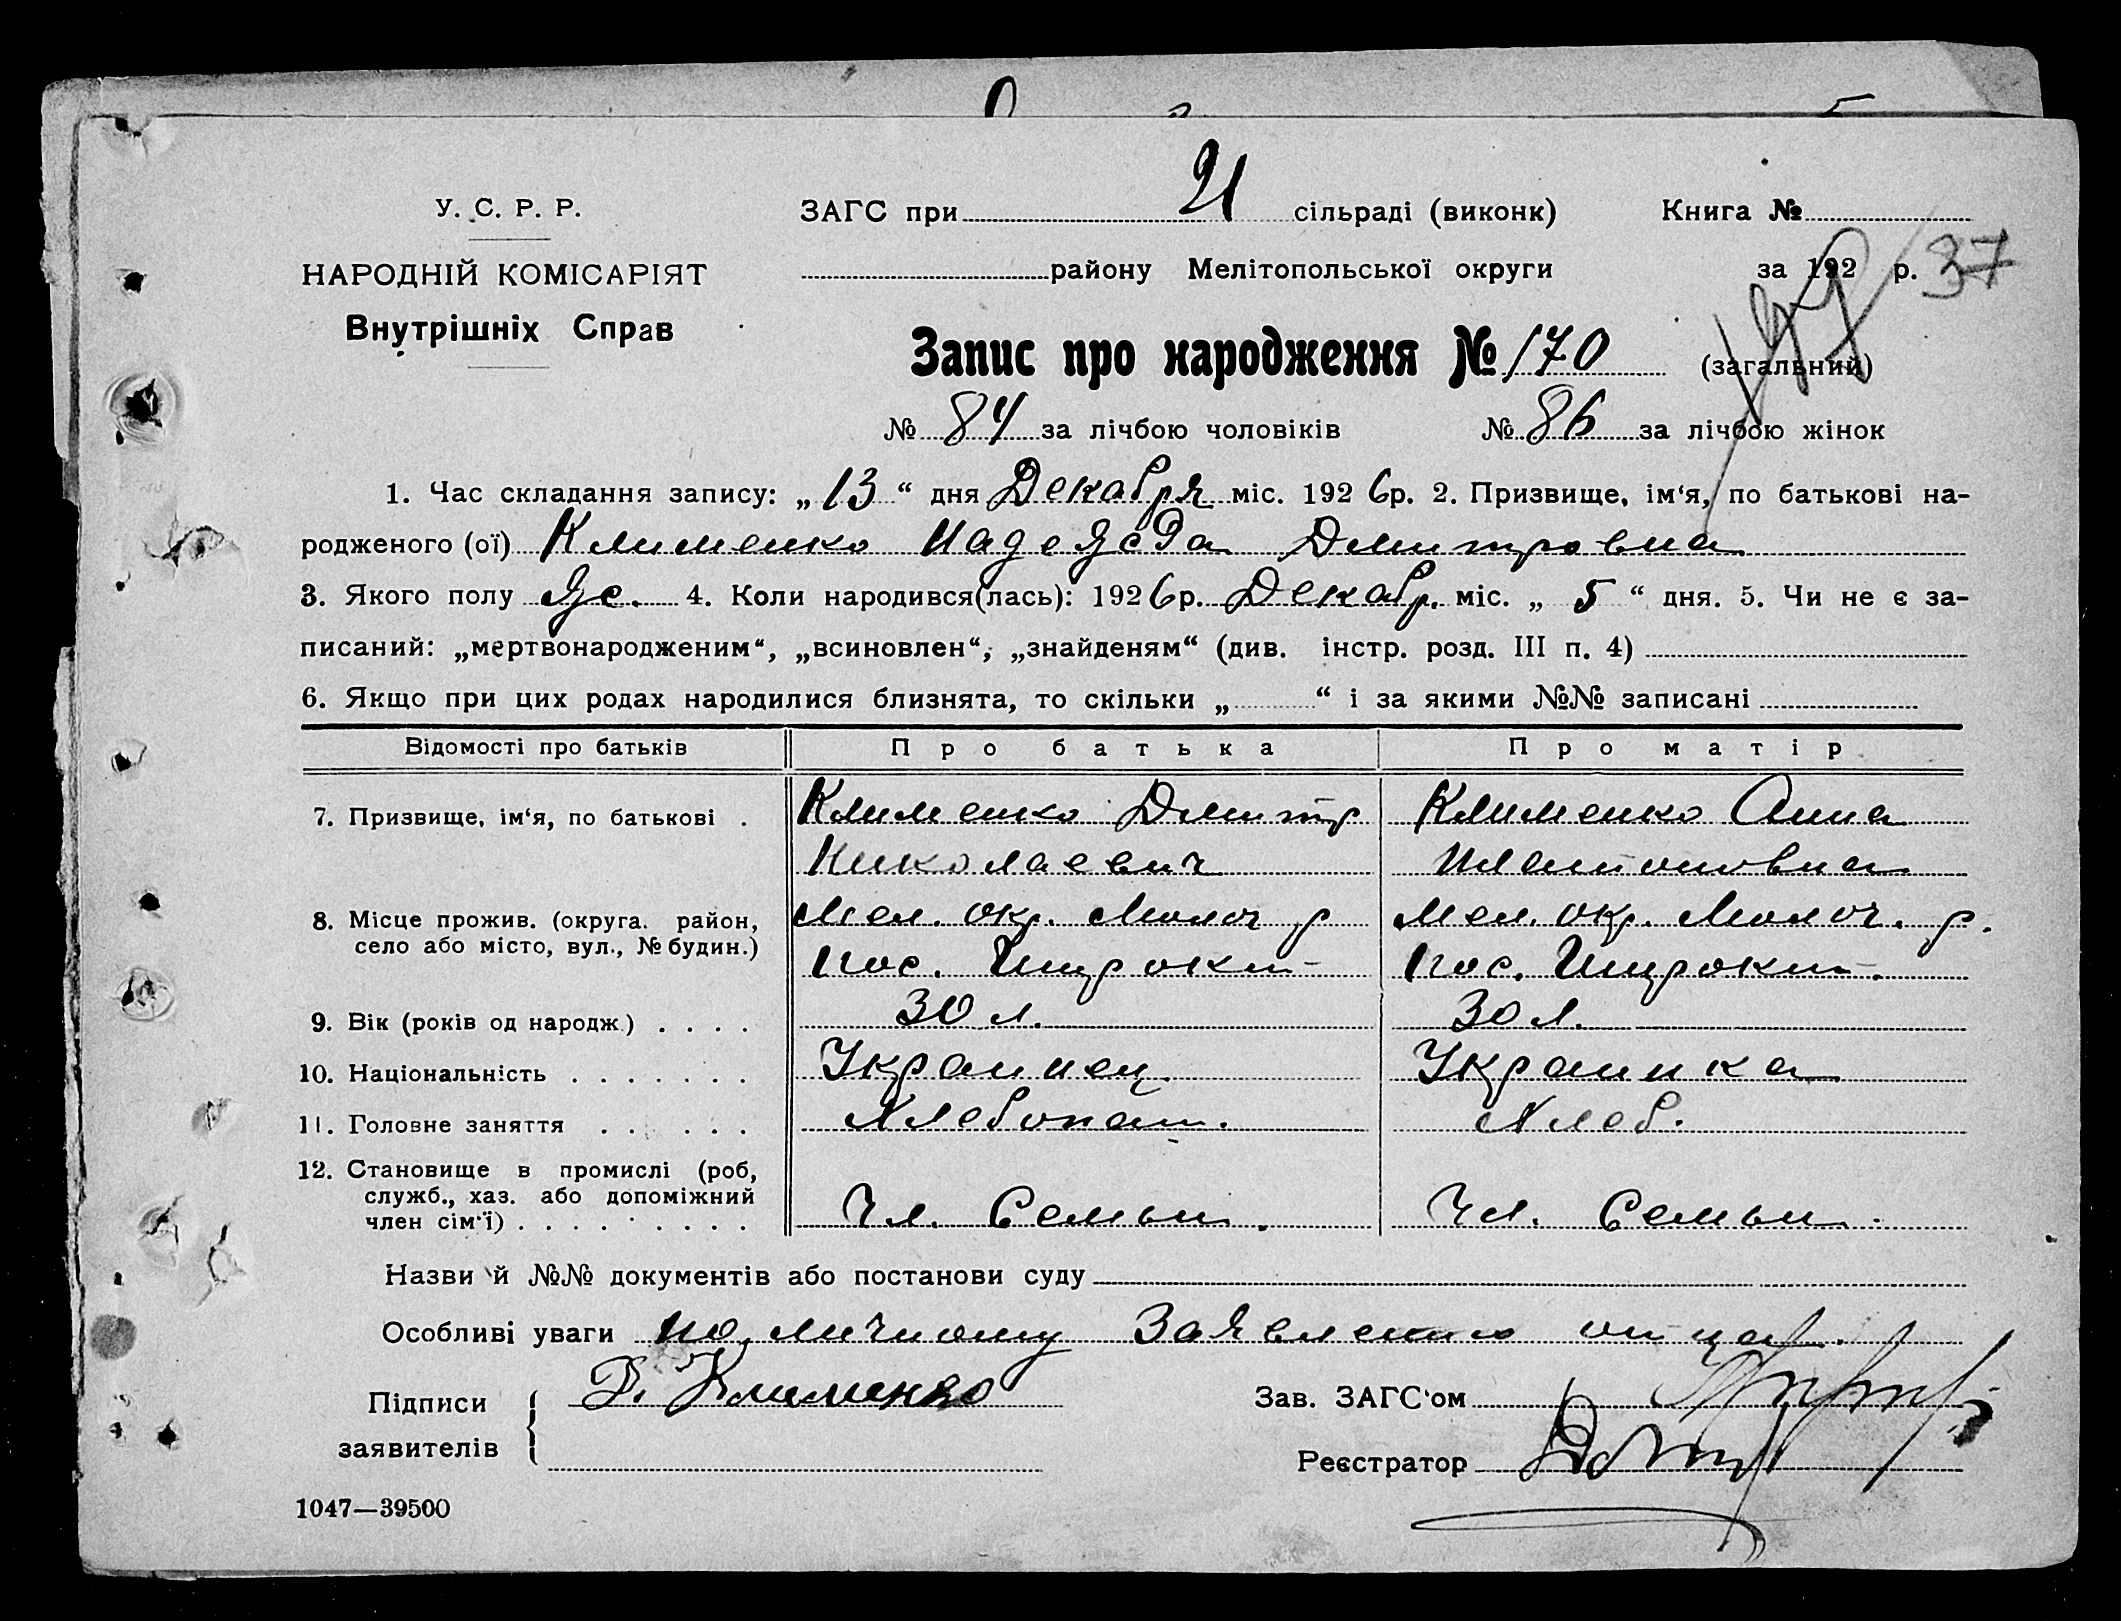 У. С. Р. Р.
НАРОДНІЙ КОМІСАРІЯТ
Внутрішніх Справ
ЗАГС при И сільраді (виконк) Книга №
району Мелітопольської округи за 192 р. 37
Запис про народження № 170 (загальний)
№ 84 за лічбою чоловіків № 86 за лічбою жінок
1. Час складання запису: „ 13 “ дня Декабря міс. 192 6 р. 2. Призвище, ім‘я, по батькові на-
родженого (ої) Клименко Надежда Дмитровна
3. Якого полу Же. 4. Коли народився(лась): 192 6 р. Декабр. міс. „ 5 “ дня. 5. Чи не є за-
писаний: „мертвонародженим“, „всиновлен“, „знайденям“ (див. інстр. розд. III п. 4)
6. Якщо при цих родах народилися близнята, то скільки „ “ і за якими №№ записані
Відомості про батьків Про батька Про матір
7. Призвище, ім‘я, по батькові . Клименко Дмитр Клименко Анна
Николаевич Платоновна
8. Місце прожив. (округа. район, Мел. окр. Молоч р Мел. окр. Молоч. р.
село або місто, вул., № будин.) пос. Широкий пос. Широкий.
9. Вік (років од народж.) . . . . 30 л. 30 л.
10. Національність . . . . . . . Украинец Украинка
11. Головне заняття . . . . . . Хлебопаш. Хлеб.
12. Становище в промислі (роб,
служб., хаз. або допоміжний
член сім‘ї) . . . . . . . . . Чл. Семьи. Чл. Семьи.
Назви й №№ документів або постанови суду
Особливі уваги по личному Заявлению отца.
Підписи Д. Клименко Зав. ЗАГС‘ом
заявителів Реєстратор
1047—39500